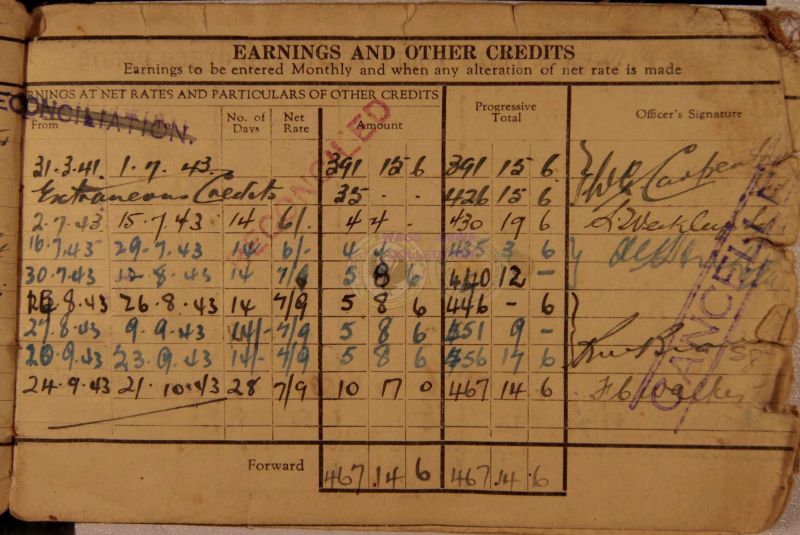 EARNINGS AND OTHER CREDITS
Earnings to be entered Monthly and when any alteration of net rate is made
RNINGS AT NET RATES AND PARTICULARS OF OTHER CREDITS
ECONCILIATION.
From No. of Days Net Rate Amount Progressive Total Officer's Signature
RECONCILED
31.3.41. 1.7.43. 391 15 6 391 15 6
Extraneous Credits 35 - - 426 15 6
2.7.43 15.7.43 14 6/- 4 4 - 430 19 6
16.7.43 29.7.43 14 6/- 4 4 - 435 3 6
30.7.43 12.8.43 14 7/9 5 8 6 440 12 -
13.8.43 26.8.43 14 7/9 5 8 6 446 - 6
27.8.43 9.9.43 14/- 7/9 5 8 6 451 9 -
10.9.43 23.9.43 14/- 7/9 5 8 6 456 17 6
24.9.43 21.10.43 28 7/9 10 17 0 467 14 6
CANCELLED
Forward 467.14 6 467.14.6